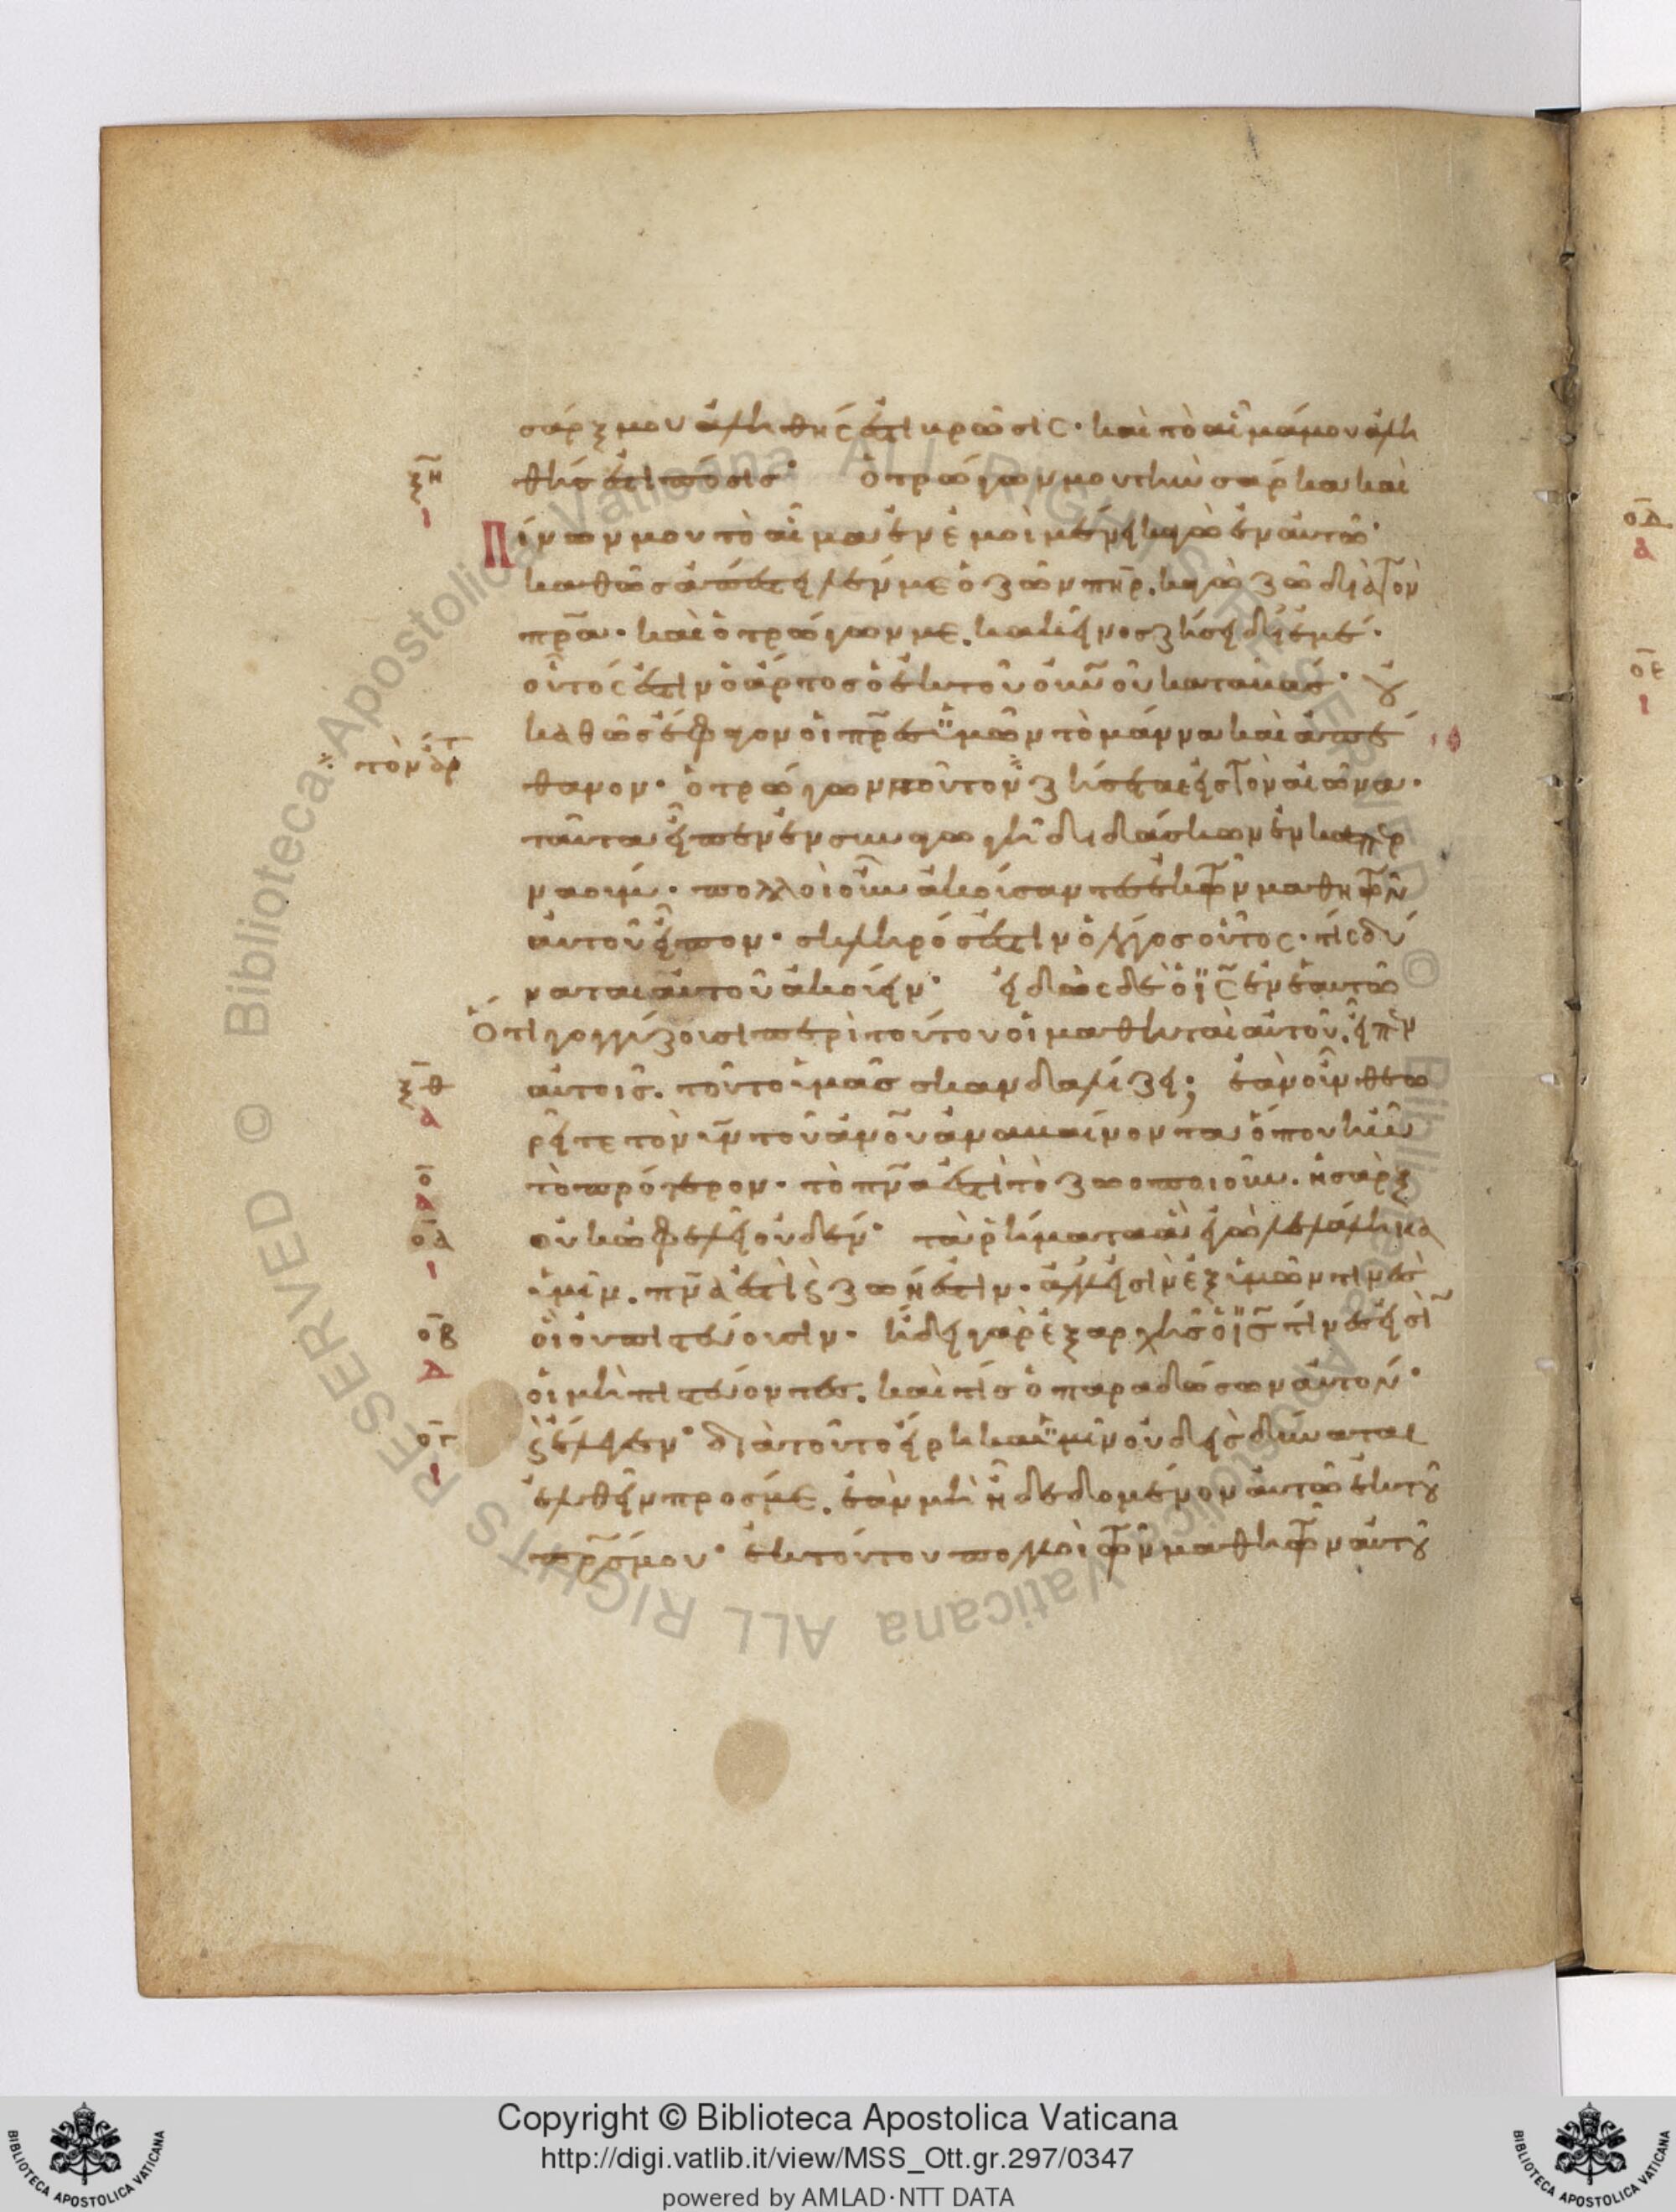 σάρξ μου ἀληθής ἐστι βρῶσις· καὶ τὸ αἷμά μου ἀλη
θής ἐστι πόσις· ὁ τρώγων μου τὴν σάρκα καὶ
ξη
ι
Πίνων μου τὸ αἷμα ἐν ἐμοὶ μένει κἀγὼ ἐν αὐτῶ·
καθὼς ἀπέστειλέν με ὁ ζῶν πηρ. κἀγὼ ζῶ διὰ τὸν
πρα. καὶ ὁ τρώγων με. κακεῖνος ζήσει δι' ἐμέ.
οὗτός ἐστιν ὁ ἄρτος ὁ ἐκ τοῦ οὐνοῦ καταβάς· οὐ
καθὼς ἔφαγον οἱ πρες ὑμῶν τὸ μάννα καὶ ἀπέ
⁘ τὸν ἄρτ
θανον. ὁ τρώγων τοῦτον ζήσεται εἰς τὸν αἰῶνα.
ταῦτα εἶπεν ἐν συναγωγῆ διδάσκων ἐν καπερ
ναούμ. πολλοὶ οὖν ἀκούσαντες ἐκ τῶν μαθητῶν
αὐτοῦ εἶπον. σκληρός ἐστιν ὁ λόγος οὗτος. τίς δύ
ναται αὐτοῦ ἀκούειν· εἰδὼς δὲ ὁ ις ἐν ἑαυτῶ
Ὅτι γογγύζουσι περὶ τούτου οἱ μαθηταὶ αὐτοῦ. εἶπεν
ξθ
α
αὐτοῖς. τοῦτο ὑμᾶς σκανδαλίζει; ἐὰν οὖν θεω
ρεῖτε τὸν υν τοῦ ανου ἀναβαίνοντα ὅπου ἦν
ο
α
τὸ πρότερον. τὸ πνα ἐστὶ τὸ ζωοποιοῦν. ἡ σὰρξ
οα
ι
οὐκ ὠφελεῖ οὐδέν· τὰ ῥήματα ἃ ἐγὼ λελάληκα
ὑμῖν. πνα ἐστὶ ϗ ζωή ἐστιν. ἀλλ' εἰσὶν ἐξ ὑμῶν τινὲς
οβ
α
οἳ οὐ πιστεύουσιν. ἤδει γὰρ ἐξ αρχῆς ὁ ις τίνες εἰσὶ
οἱ μὴ πιστεύοντες. καὶ τίς ὁ παραδώσων αὐτόν·
ογ
ι
ϗ ἔλεγεν· διὰ τοῦτο εἴρηκα ὑμῖν οὐδεὶς δύναται
ἐλθεῖν πρός με. ἐὰν μὴ ἦ δεδομένον αὐτῶ ἐκ τοῦ
πρς μου· ἐκ τούτου πολλοὶ τῶν μαθητῶν αὐτοῦ
© Biblioteca Apostolica Vaticana ALL RIGHTS RESERVED © Biblioteca Apostolica Vaticana ALL RIGHTS RESERVED
οδ
α
οε
ι
Copyright © Biblioteca Apostolica Vaticana
http://digi.vatlib.it/view/MSS_Ott.gr.297/0347
powered by AMLAD·NTT DATA
BIBLIOTECA APOSTOLICA VATICANA
BIBLIOTECA APOSTOLICA VATICANA